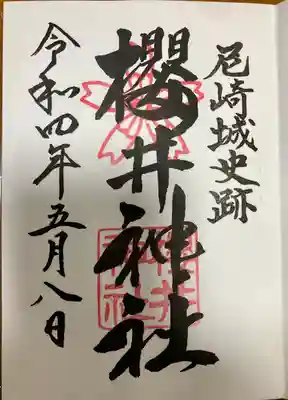 尼崎城史跡
櫻井神社
令和四年五月八日
櫻井神社